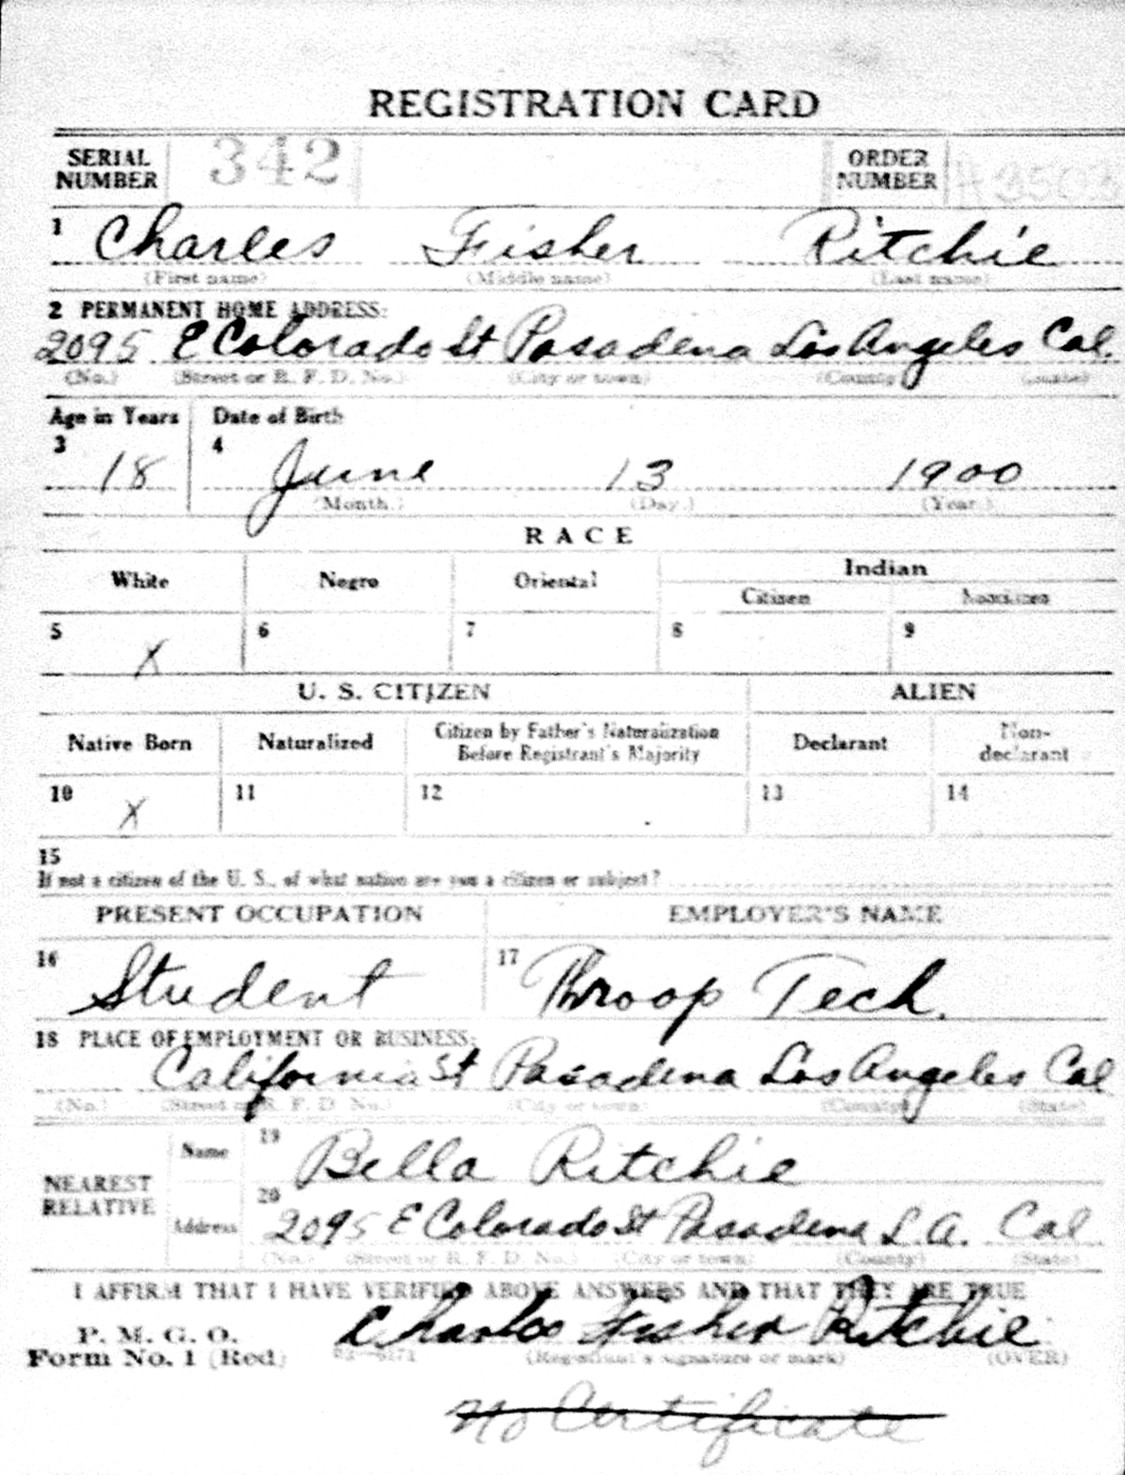 REGISTRATION CARD
SERIAL NUMBER 342 ORDER NUMBER
1 Charles Fisher Ritchie
(First name) (Middle name) (Last name)
2 PERMANENT HOME ADDRESS:
2095 E Colorado St Pasadena Los Angeles Cal.
(No.) (Street or R. F. D. No.) (City or town) (County) (State)
Age in Years Date of Birth
3 18 4 June 13 1900
(Month.) (Day.) (Year.)
RACE
White Negro Oriental Indian
Citizen Noncitizen
5 X 6 7 8 9
U. S. CITIZEN ALIEN
Native Born Naturalized Citizen by Father's Naturalization Before Registrant's Majority Declarant Non-declarant
10 X 11 12 13 14
15
If not a citizen of the U. S., of what nation are you a citizen or subject?
PRESENT OCCUPATION EMPLOYER'S NAME
16 Student 17 Throop Tech.
18 PLACE OF EMPLOYMENT OR BUSINESS:
California St Pasadena Los Angeles Cal
(No.) (Street or R. F. D. No.) (City or town) (County) (State)
NEAREST RELATIVE
Name 19 Bella Ritchie
Address 20 2095 E Colorado St Pasadena L.A. Cal
(No.) (Street or R. F. D. No.) (City or town) (County) (State)
I AFFIRM THAT I HAVE VERIFIED ABOVE ANSWERS AND THAT THEY ARE TRUE
P. M. G. O.
Form No. 1 (Red) Charles Fisher Ritchie
(Registrant's signature or mark) (OVER)
No Certificate